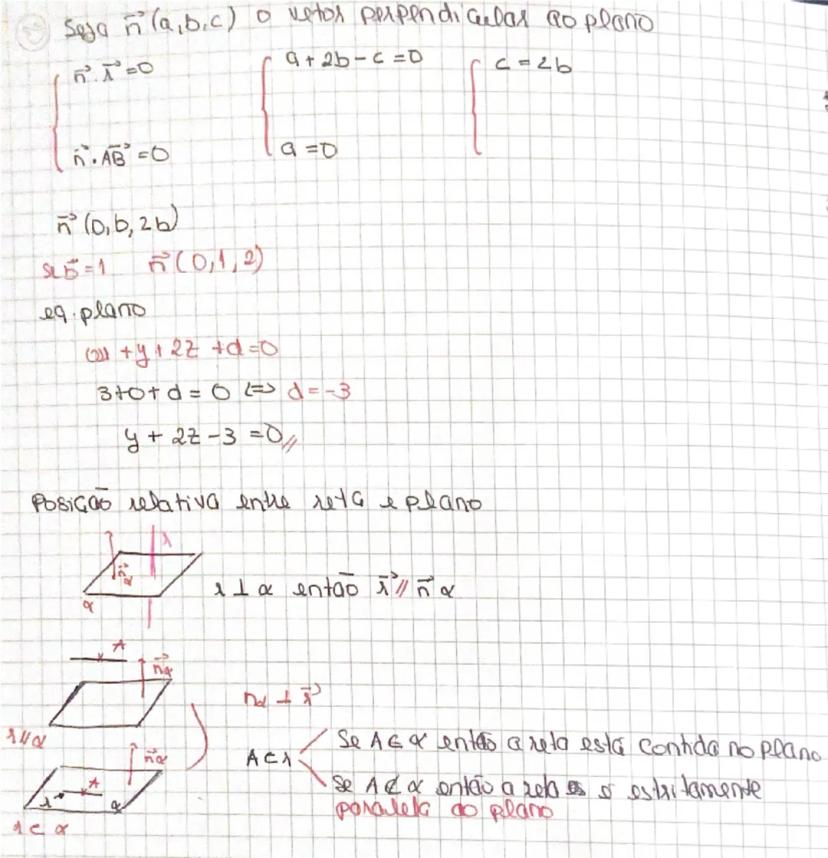 Seja n⃗(a,b,c) o vetor perpendicular ao plano
{ n⃗ . r⃗ = 0 { a + 2b - c = 0 { c = 2b
{ n⃗ . AB⃗ = 0 { a = 0
n⃗ (0, b, 2b)
se b = 1 n⃗ (0, 1, 2)
eq. plano
0x + y + 2z + d = 0
3 + 0 + d = 0 <=> d = -3
y + 2z - 3 = 0 //
Posição relativa entre reta e plano
r
n⃗α
α
r ⊥ α então r⃗ // n⃗ α
A
n⃗α
nα ⊥ r⃗
r // α
A ⊂ r
Se A ∈ α então a reta está contida no plano
Se A ∉ α então a reta é estritamente
paralela ao plano
n⃗α
A
r
α
r ⊂ α